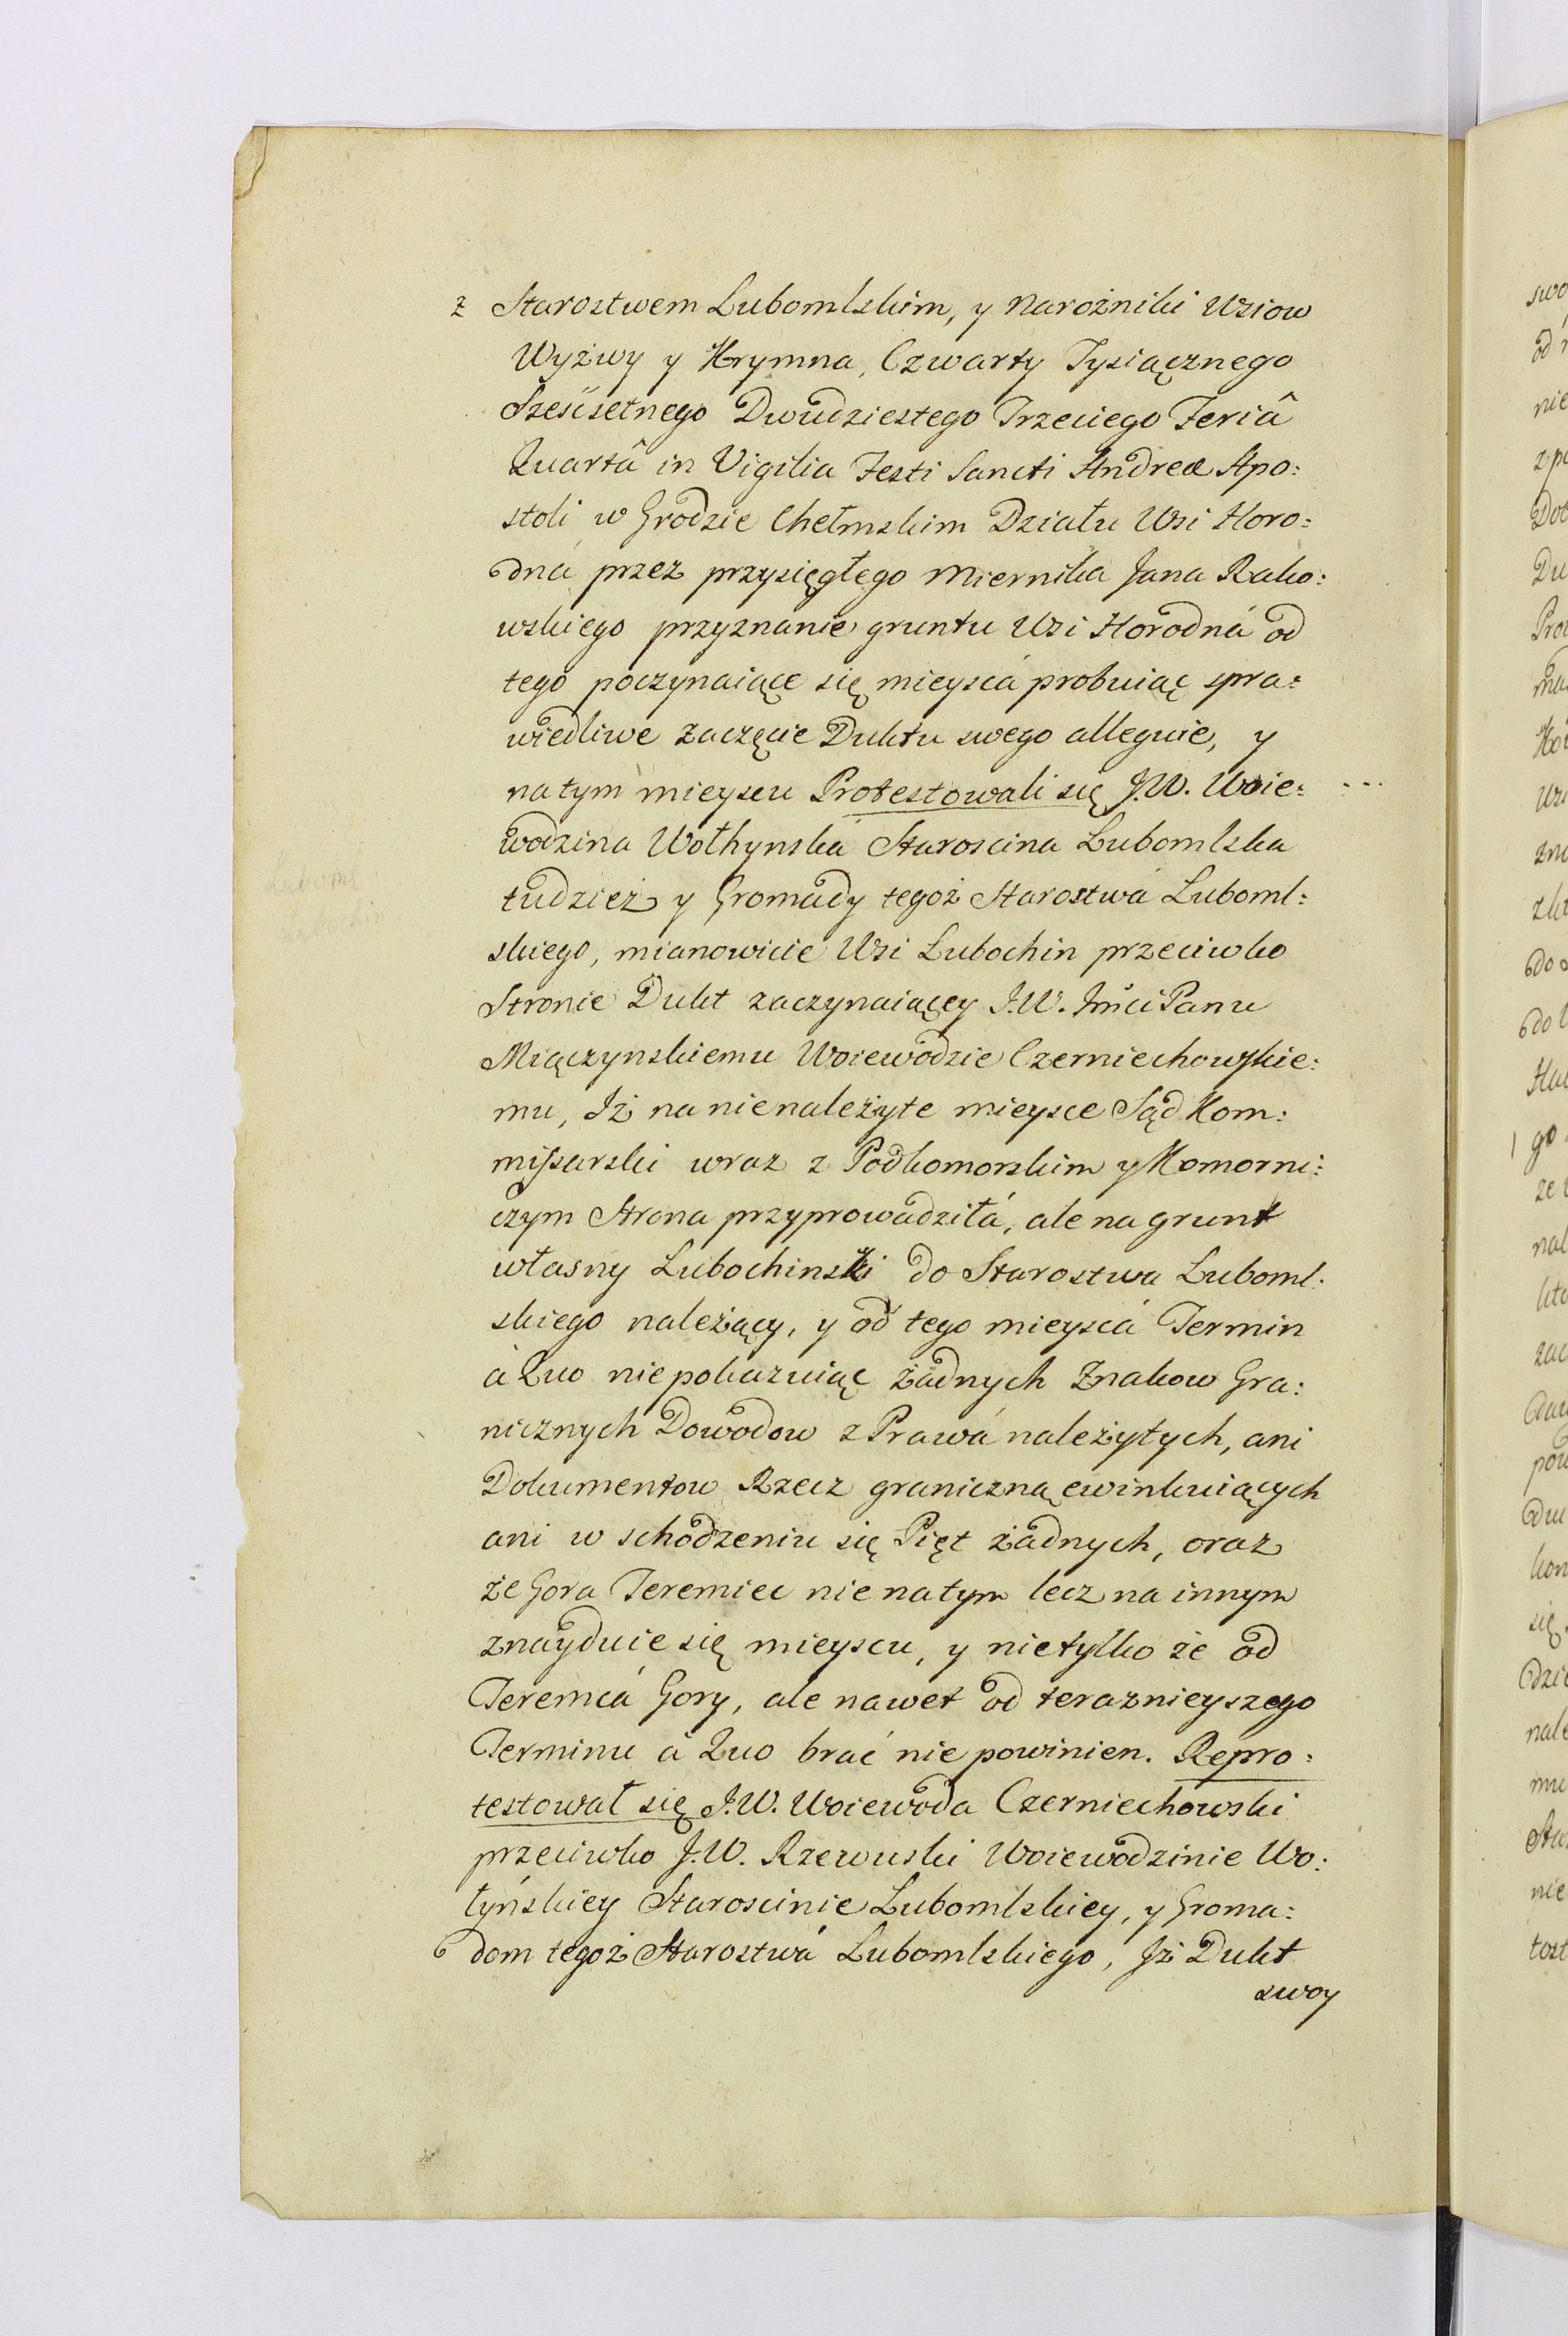 z Starostwem Lubomlskim, y Narożniki Wsiow
Wyżwy y Krymna, Czwarty Tysiącznego
Szescsetnego Dwudziestego Trzeciego Feriâ
Quartâ in Vigilia Festi Sancti Andreæ Apo:
stoli w Grodzie Chełmskim Działu Wsi Horo:
dná przez przysięgłego Miernika Jana Rako:
wskiego przyznanie gruntu Wsi Horodná od
tego poczynaiące się mieyscá probuiąc spra:
wiedliwe zaczęcie Duktu swego alleguie, y
na tym mieyscu Protestowali się J.W. Woie:
wodzina Wołhynská Staroscina Lubomlska
tudzież y Gromady tegoż Starostwá Luboml:
skiego, mianowicie Wsi Lubochin przeciwko
Stronie Dukt zaczynaiącey J.W. Jmci Panu
Miączynskiemu Woiewodzie Czerniechowskie:
mu, Iż na nienależyte mieysce Sąd Kom:
missarski wraz z Podkomorskim y Komorni:
czym Strona przyprowadziłá, ale na grunt
własny Lubochinski do Starostwa Luboml:
skiego należący, y od tego mieyscá Termin
á Quo niepokazuiąc żadnych Znakow Gra:
nicznych Dowodow z Prawá należytych, ani
Dokumentow Rzecz graniczną ewinkuiących
ani w schodzeniu się Pięt żadnych, oraz
że Gora Teremiec nie na tym lecz na innym
znayduie się mieyscu, y nietylko że od
Teremcá Gory, ale nawet od teraznieyszego
Terminu á Quo brać nie powinien. Repro:
testował się J.W. Woiewoda Czerniechowski
przeciwko J.W. Rzewuski Woiewodzinie Wo:
łyńskiey Staroscinie Lubomlskiey, y Groma:
dom tegoż Starostwá Lubomlskiego, Iż Dukt
swoy